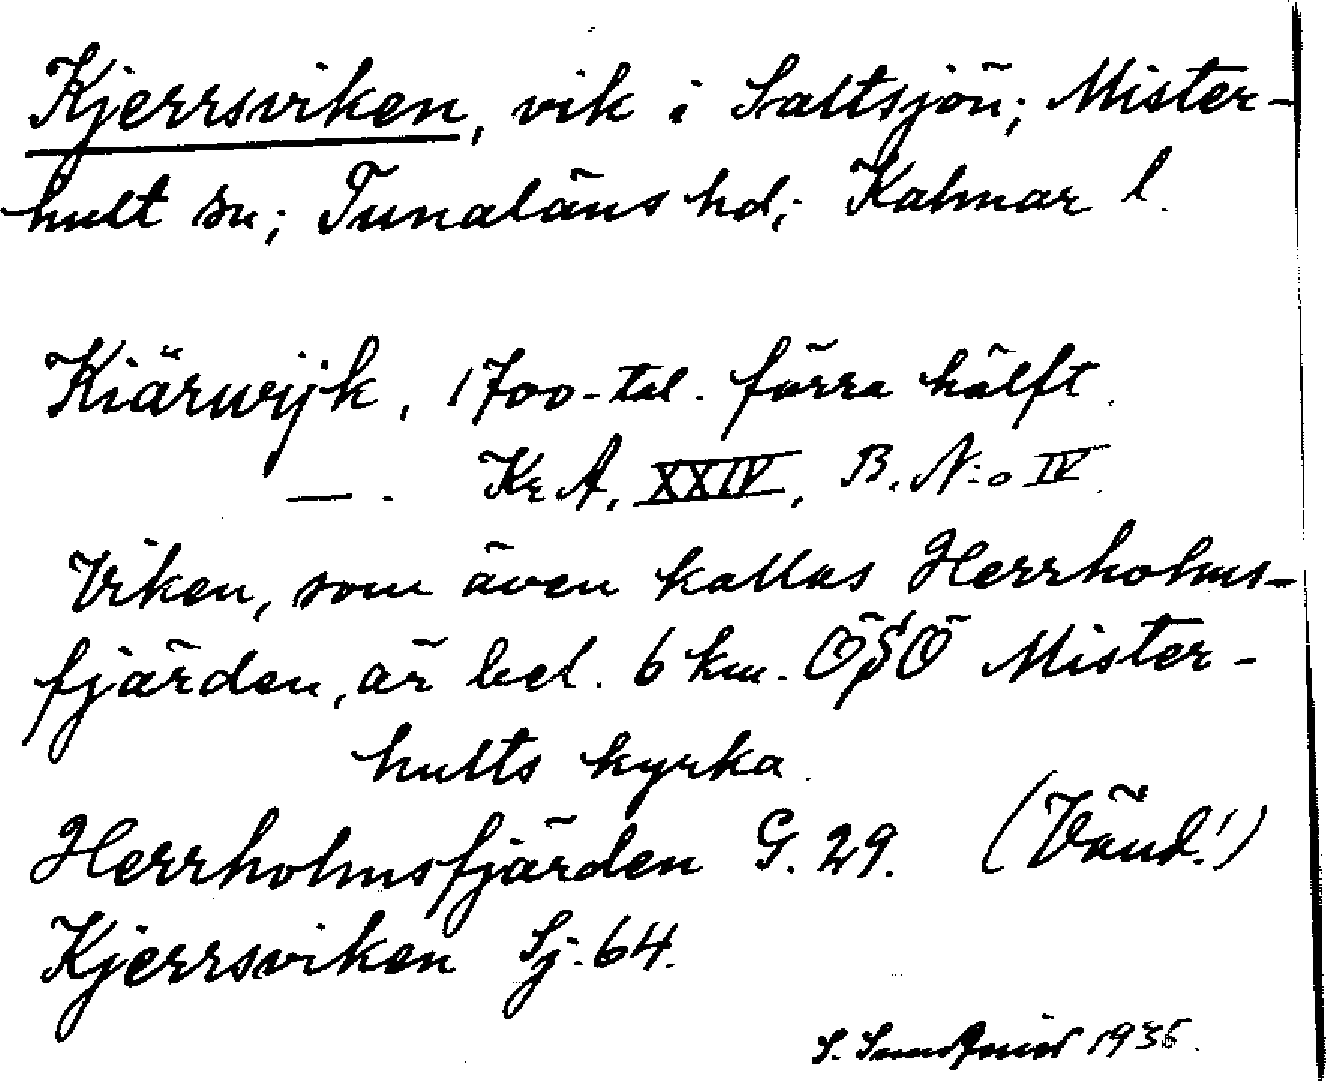 Kjerrsviken, vik i Saltsjön; Mister-
hult sn; Tunaläns hd; Kalmar l.
Kiärwijk, 1700-tal. förra hälft.
— . Kr A, XXIV, B. N:o IV.
Viken, som även kallas Herrholms-
fjärden, är bel. 6 km. ÖSÖ Mister-
hults kyrka.
Herrholmsfjärden G. 29. (Vänd!)
Kjerrsviken Sj. 64.
S. 1936.